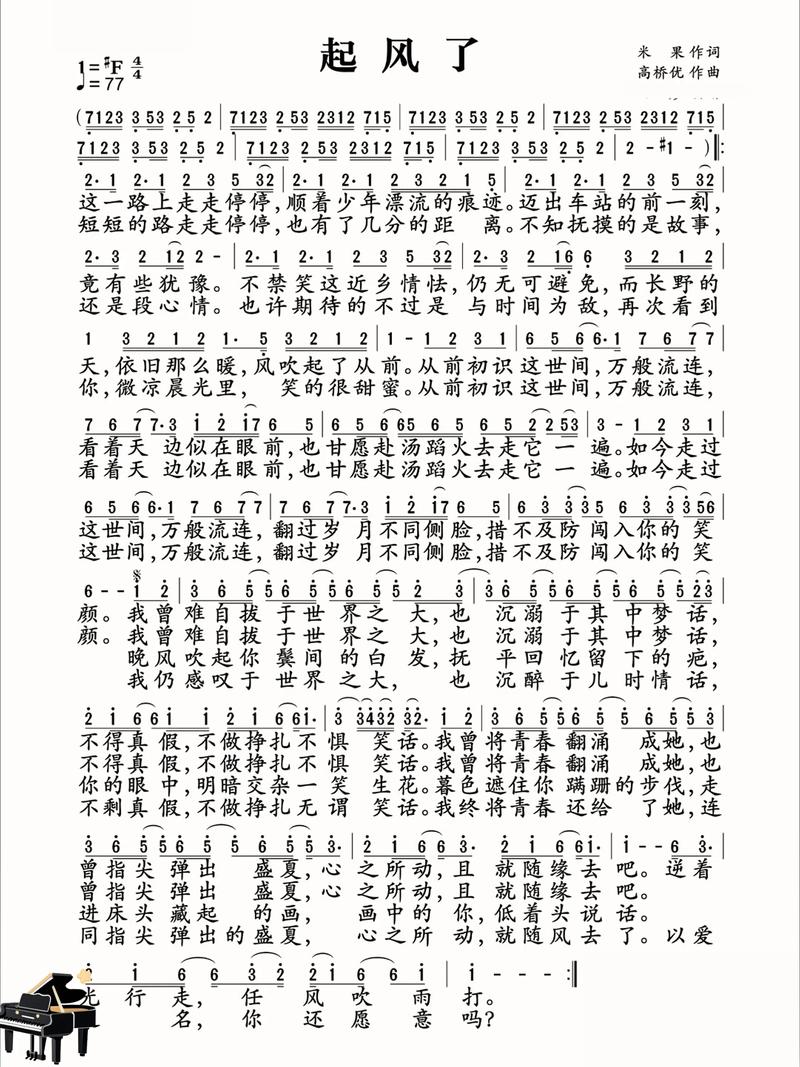 起风了
米 果 作词
高桥优 作曲
1=#F 4/4
♩=77
(7123 3 53 2 5 2 | 7123 3 53 2312 715 | 7123 3 53 2 5 2 | 7123 3 53 2312 715 |
7123 3 53 2 5 2 | 7123 2 53 2312 715 | 7123 3 53 2 5 2 | 2 - #1 - ) ‖:
2· 1 2· 1 2 3 5 32 | 2· 1 2· 1 2 3 2 1 5 | 2· 1 2· 1 2 3 5 32 |
这一路上走走停停，顺着少年漂流的痕迹。迈出车站的前一刻，
短短的路走走停停，也有了几分的距 离。不知抚摸的是故事，
2· 3 2 12 2 - | 2· 1 2· 1 2 3 5 32 | 2· 3 2 16 6 3 2 1 2 |
竟有些犹豫。不禁笑这近乡情怯，仍无可避免，而长野的
还是段心情。也许期待的不过是 与时间为敌，再次看到
1 3 2 1 2 1· 5 | 3 2 1 2 1 - | 1 - 1 2 3 1 | 6 5 6 6· 1 7 6 7 7 |
天，依旧那么暖，风吹起了从前。从前初识这世间，万般流连，
你，微凉晨光里， 笑的很甜蜜。从前初识这世间，万般流连，
7 6 7 7·3 1 2 17 6 5 | 6 5 6 65 6 5 6 5 2 253 | 3 - 1 2 3 1 |
看着天 边似在眼前，也甘愿赴汤蹈火去走它一 遍。如今走过
看着天 边似在眼前，也甘愿赴汤蹈火去走它一 遍。如今走过
6 5 6 6· 1 7 6 7 7 | 7 6 7 7·3 1 2 17 6 5 | 6 3 3 3 5 6 3 3 356 |
这世间，万般流连，翻过岁 月不同侧脸，措不及防 闯入你的 笑
这世间，万般流连，翻过岁 月不同侧脸，措不及防 闯入你的 笑
6 - - 1 2 | 3 6 5 56 5 56 5 2 3 | 3 6 5 56 5 56 5 23 |
颜。我曾难自拔于世界之 大，也 沉溺于其中梦话，
颜。我曾难自拔于世界之 大，也 沉溺于其中梦话，
晚风吹起你鬓间的白 发，抚 平回忆留下的疤，
我仍感叹于世界之大， 也 沉醉于儿时情话，
不得真 假，不做挣扎不 惧 笑话。我曾将青春翻涌 成她，也
不得真 假，不做挣扎不 惧 笑话。我曾将青春翻涌 成她，也
你的眼 中，明暗交杂一 笑 生花。暮色遮住你 蹒跚的步伐，走
不剩真 假，不做挣扎无 谓 笑话。我终将青春还给 了她，连
曾指尖 弹出 盛夏，心 之所动，且 就随缘去 吧。逆着
曾指尖 弹出 盛夏，心 之所动，且 就随缘去 吧。
进床头 藏起 的画， 画中的 你，低着头说 话。
同指尖 弹出的盛夏， 心之所 动，就随风去 了。以爱
行 走， 任 风 吹 雨 打。
名， 你 还 愿 意 吗？